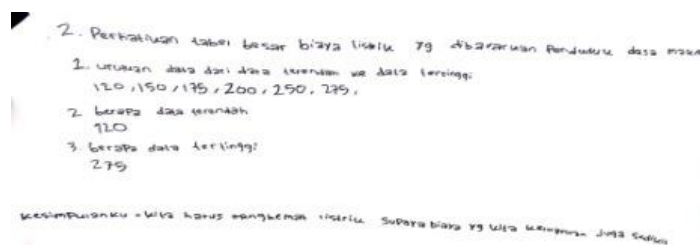 2. Perhatikan tabel besar biaya listrik yg dibayarkan Penduduk desa
1. urutkan data dari data terendah ke data tertinggi
120, 150, 175, 200, 250, 275.
2 berapa data terendah
120
3. berapa data tertinggi
275
kesimpulanku = kita harus menghemat listrik supaya biaya yg kita keluarkan juga sedikit